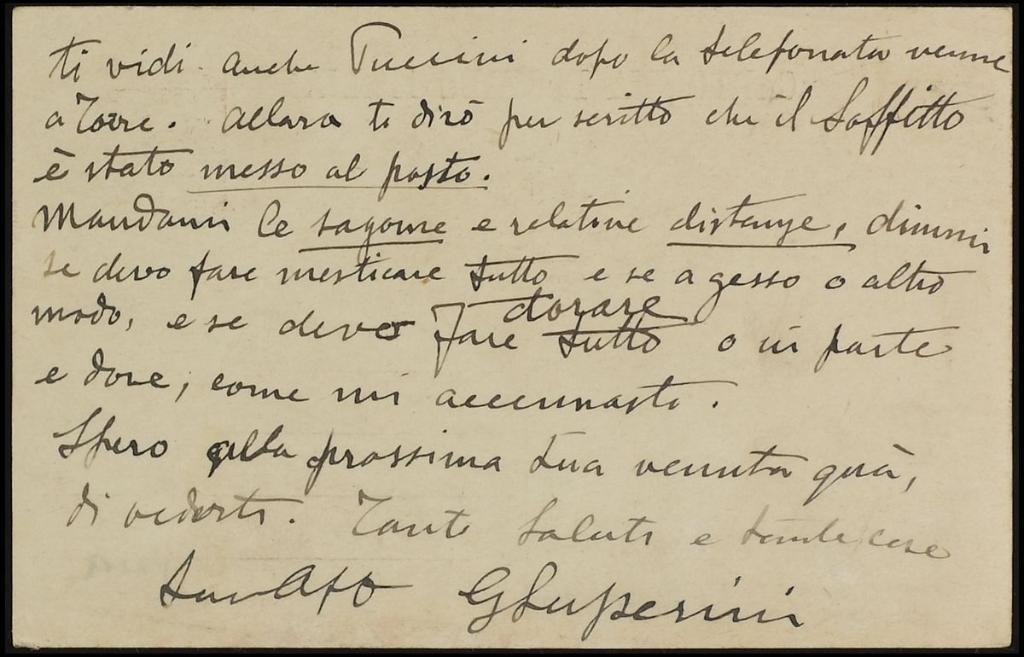 ti vidi. anche Puccini dopo la telefonata venne
a Torre. Allora ti dirò per scritto che il Soffitto
è stato messo al posto.
Mandami le sagome e relative distanze, dimmi
se devo fare mesticare tutto e se a gesso o altro
modo, e se devo fare dorare tutto o in parte
e dove, come mi accennasti.
Spero alla prossima tua venuta quà,
di vederti. Tanti saluti e tante cose
Tuo Aff